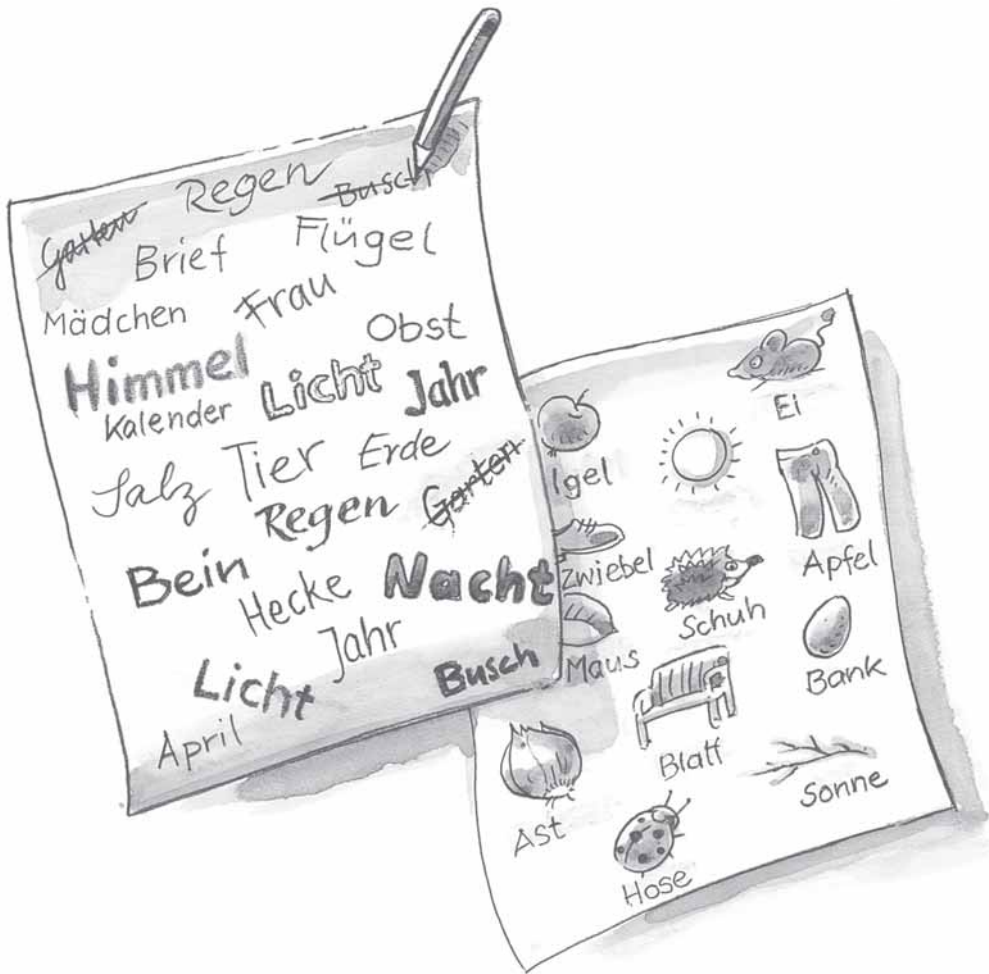 Garten Regen Busch
Brief Flügel
Mädchen Frau
Obst
Himmel Licht Jahr
Kalender
Salz Tier Erde
Regen Garten
Bein Hecke Nacht
Jahr
Licht Busch
April
Ei
Igel
Apfel
Zwiebel
Schuh
Maus
Bank
Blatt
Sonne
Ast
Hose